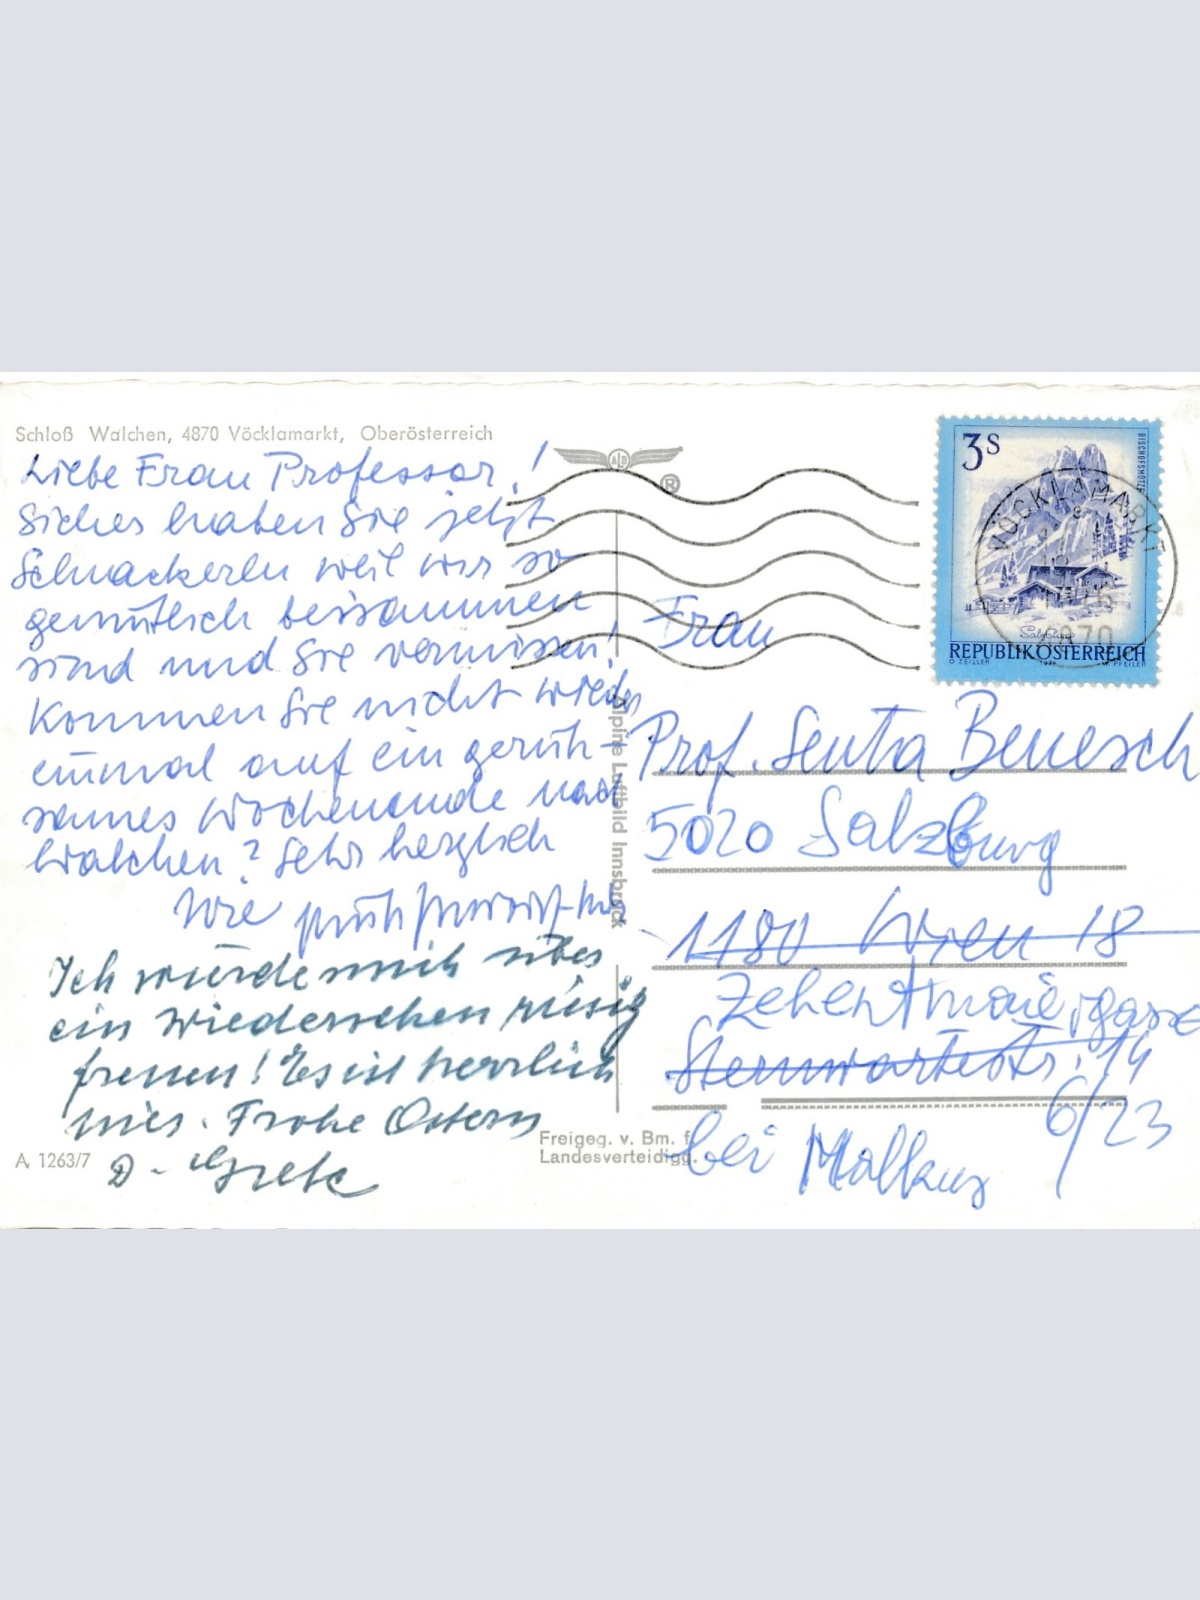 Schloß Walchen, 4870 Vöcklamarkt, Oberösterreich
Liebe Frau Professor!
Sicher haben Sie jetzt
Schnackerln weil wir so
gemütlich beisammen
sind und Sie vermissen!
Kommen Sie nicht wieder
einmal auf ein geruh-
sames Wochenende nach
Walchen? Sehr herzlich
Ihre
Ich würde mich über
ein Wiedersehen riesig
freuen! Es ist herrlich
hier. Frohe Ostern
D. Grete
A 1263/7
ALB
®
Alpine Luftbild Innsbruck
Freigeg. v. Bm. f.
Landesverteidigg.
3S
BISCHOFSMÜTZE
Salzburg
REPUBLIK ÖSTERREICH
O ZEILLER
PFEILER
VÖCKLAMARKT
4870
Frau
Prof. Senta Benesch
5020 Salzburg
1180 Wien 18
Zehentmaiergasse
Sternwartestr. 14
6/23
bei